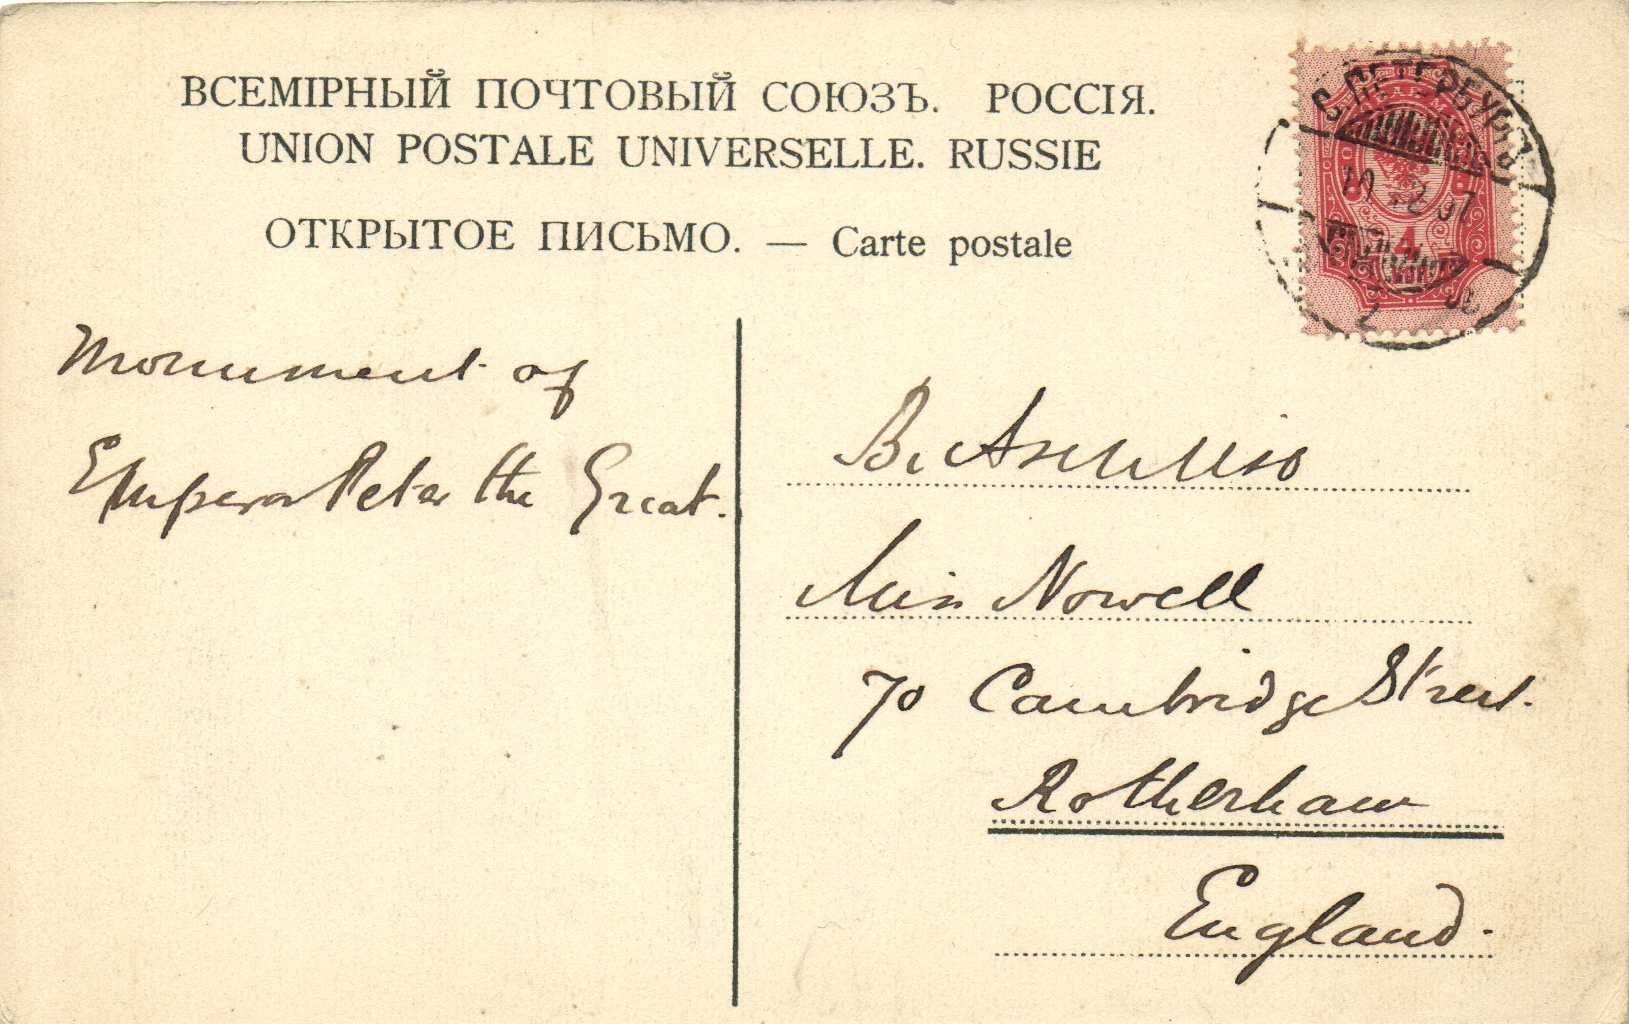 ВСЕМІРНЫЙ ПОЧТОВЫЙ СОЮЗЪ. РОССІЯ.
UNION POSTALE UNIVERSELLE. RUSSIE
ОТКРЫТОЕ ПИСЬМО. — Carte postale
С.ПЕТЕРБУРГЪ
4
Monument of
Emperor Peter the Great.
Въ Англию
Miss Nowell
70 Cambridge Street.
Rotherham
England.